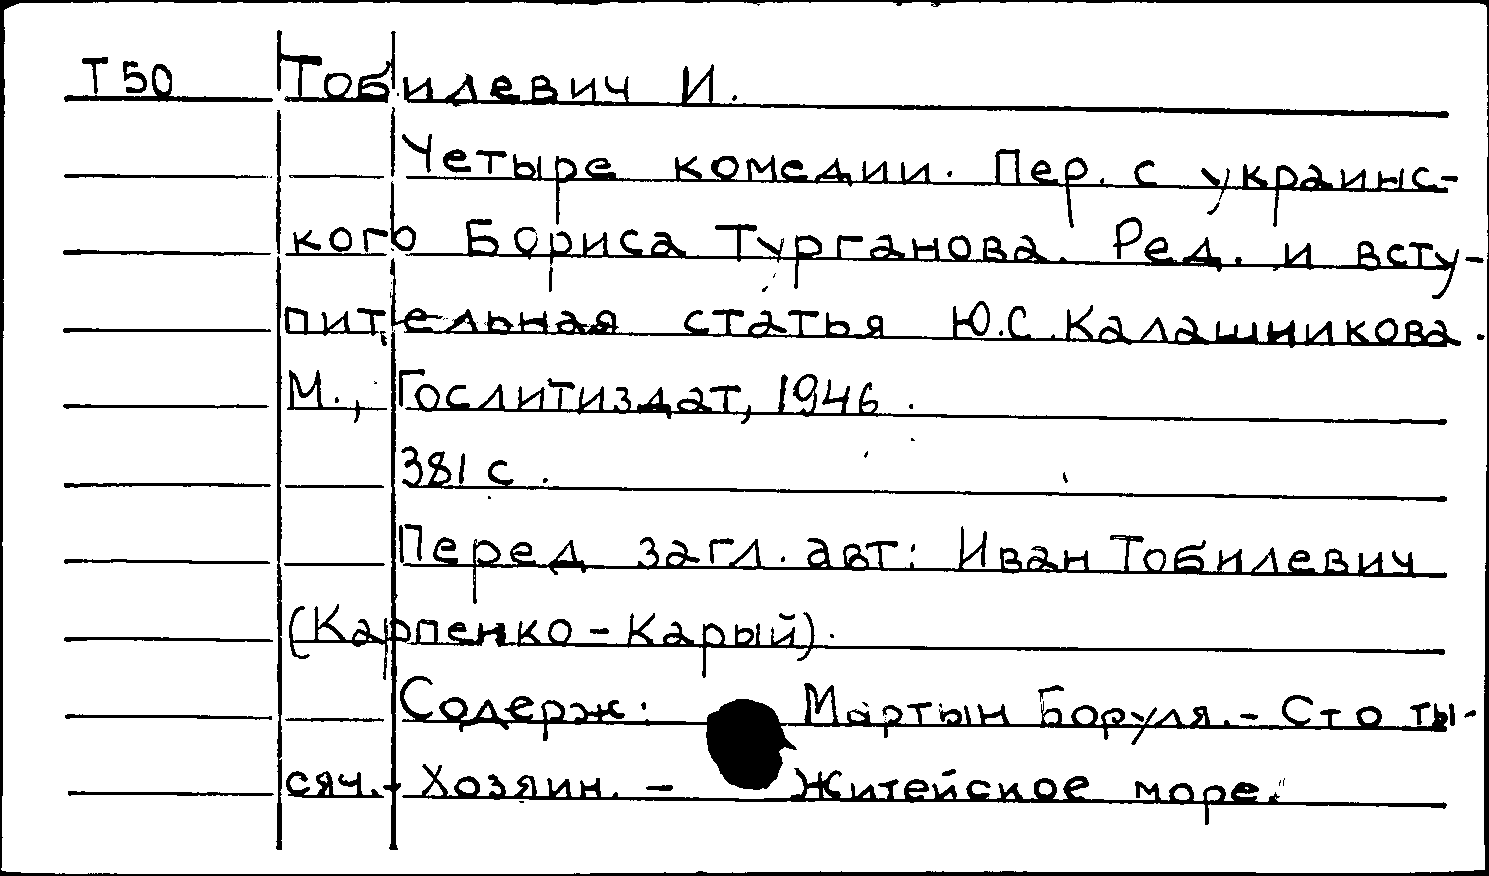 Т50 Тобилевич И.
Четыре комедии. Пер. с украинс-
кого Бориса Турганова. Ред. и всту-
пительная статья Ю.С.Калашникова.
М., Гослитиздат, 1946.
381 с.
Перед загл. авт: Иван Тобилевич
(Карпенко-Карый).
Содерж: Мартын Боруля.- Сто ты-
сяч.- Хозяин. - Житейское море.